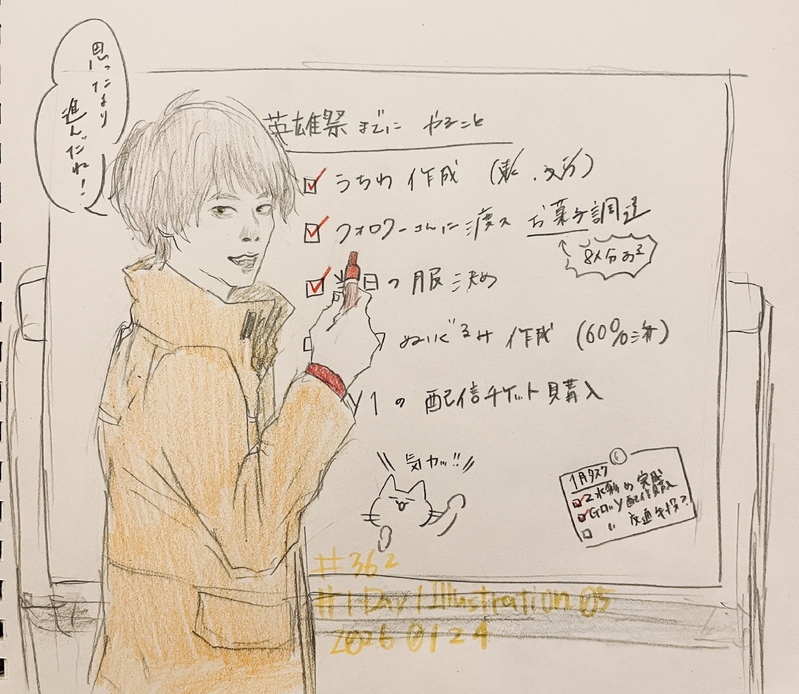 思ったより
進んだね!
英雄祭までに やること
うちわ 作成 (裏、文字)
フォロワーさんに渡す お菓子調達
8人分ある
当日の服決め
ぬいぐるみ 作成 (60%済)
Y1の 配信チケット購入
気力!!
1月タスク
の
配信購入
"
交通手段?
#362
#1Day1Illustration 05
2026 01 24